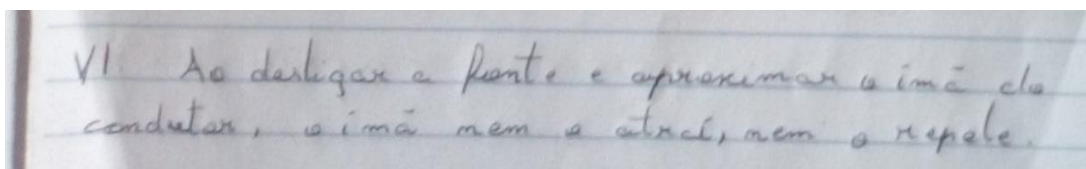 VI. Ao desligar a fonte e aproximar o imã do
condutor, o imã nem o atrai, nem o repele.